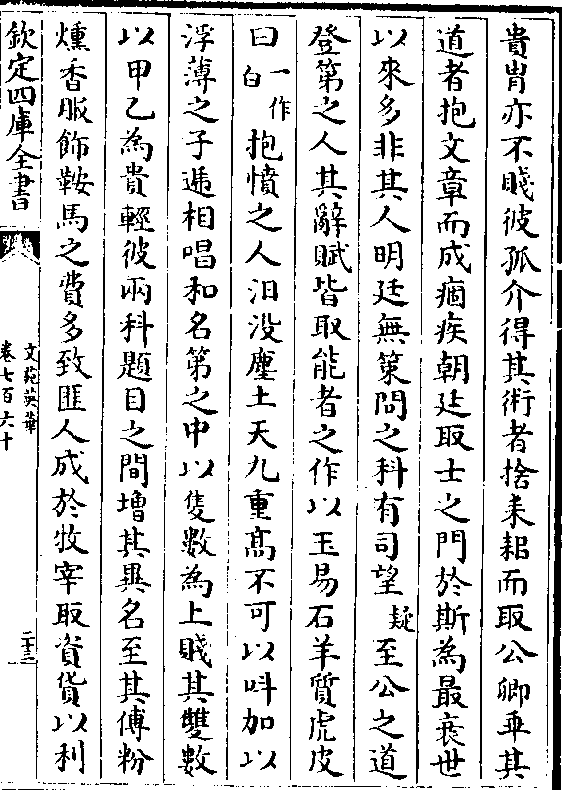 貴胄亦不賤彼孤介得其術者捨耒耜而取公卿乖其
道者抱文章而成痼疾朝廷取士之門於斯為最衰世
以來多非其人明廷無策問之科有司望疑至公之道
登第之人其辭賦皆取能者之作以玉易石羊質虎皮
曰一作白抱憤之人汨没塵土天九重髙不可以呌加以
浮薄之子逓相唱和名第之中以隻數為上賤其雙數
以甲乙為貴輕彼兩科題目之間増其異名至其傅粉
燻香服飾鞍馬之費多致匪人成於牧宰取資貨以利
欽定四庫全書
文苑英華
卷七百六十
二十三